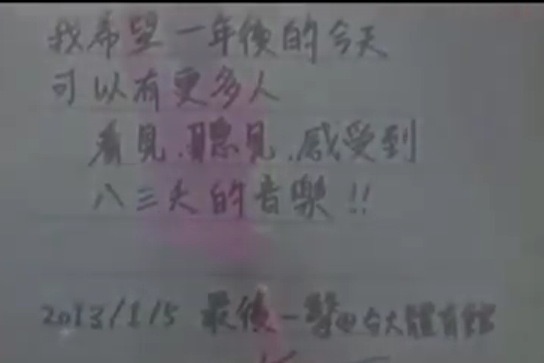 我希望一年後的今天
可以有更多人
看見、聽見、感受到
八三夭的音樂!!
2013/1/5 最後一擊@台大體育館